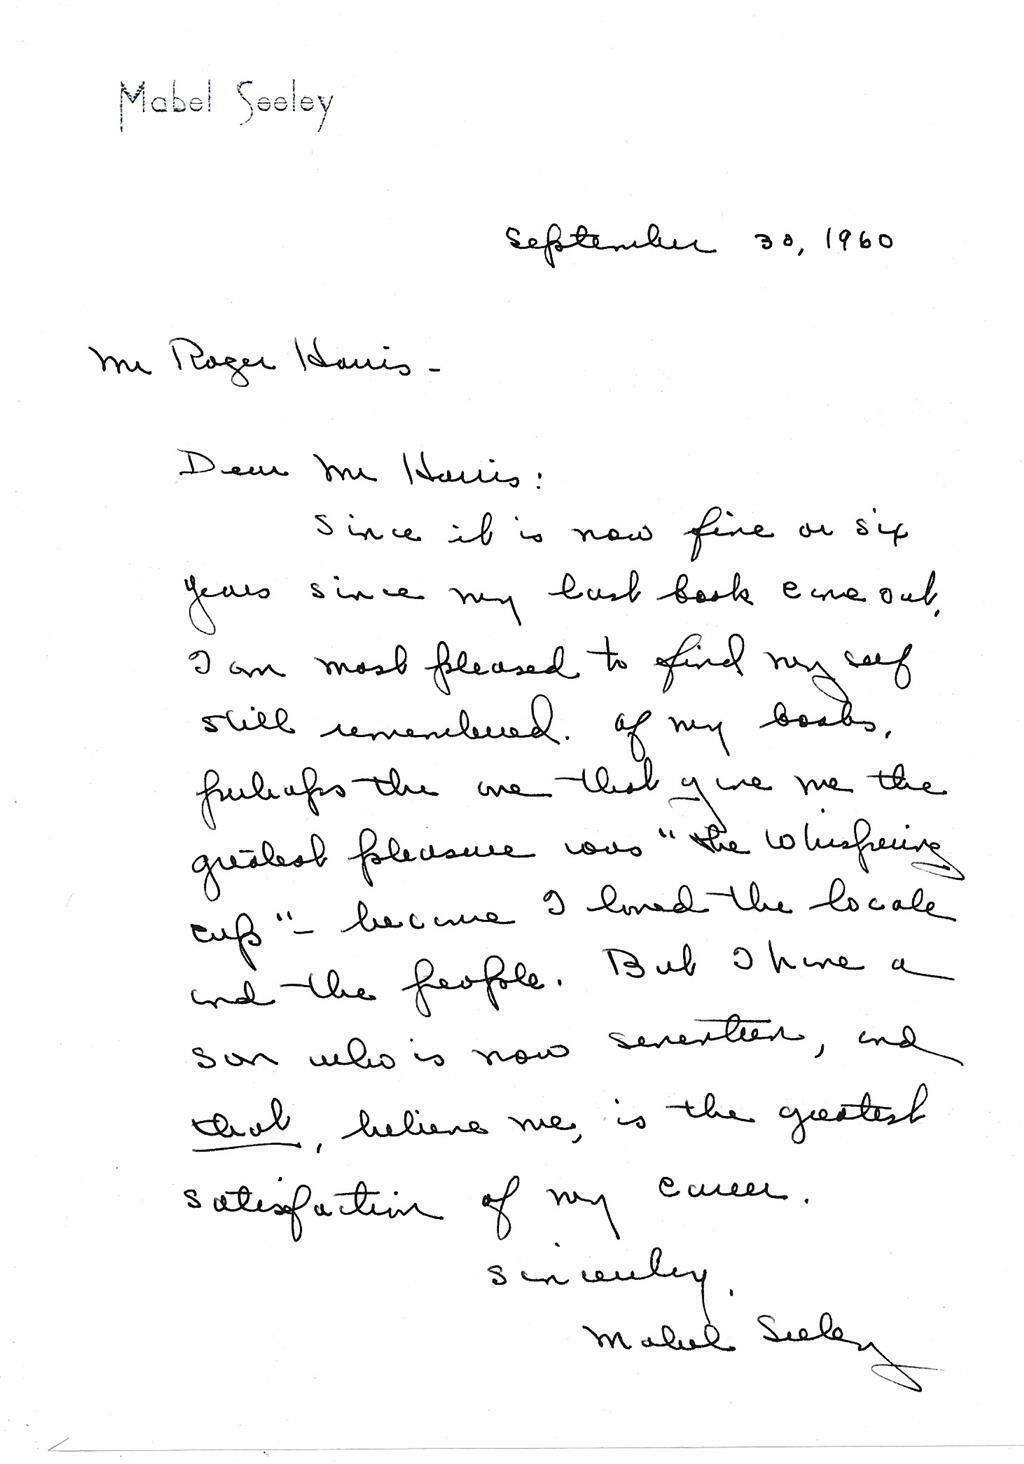 Mabel Seeley
September 30, 1960
Mr Roger Harris -
Dear Mr Harris:
Since it is now five or six
years since my last book came out,
I am most pleased to find myself
still remembered. Of my books,
perhaps the one that gave me the
greatest pleasure was "The Whispering
Cup" - because I loved the locale
and the people. But I have a
son who is now seventeen, and
that, believe me, is the greatest
satisfaction of my career.
Sincerely,
Mabel Seeley